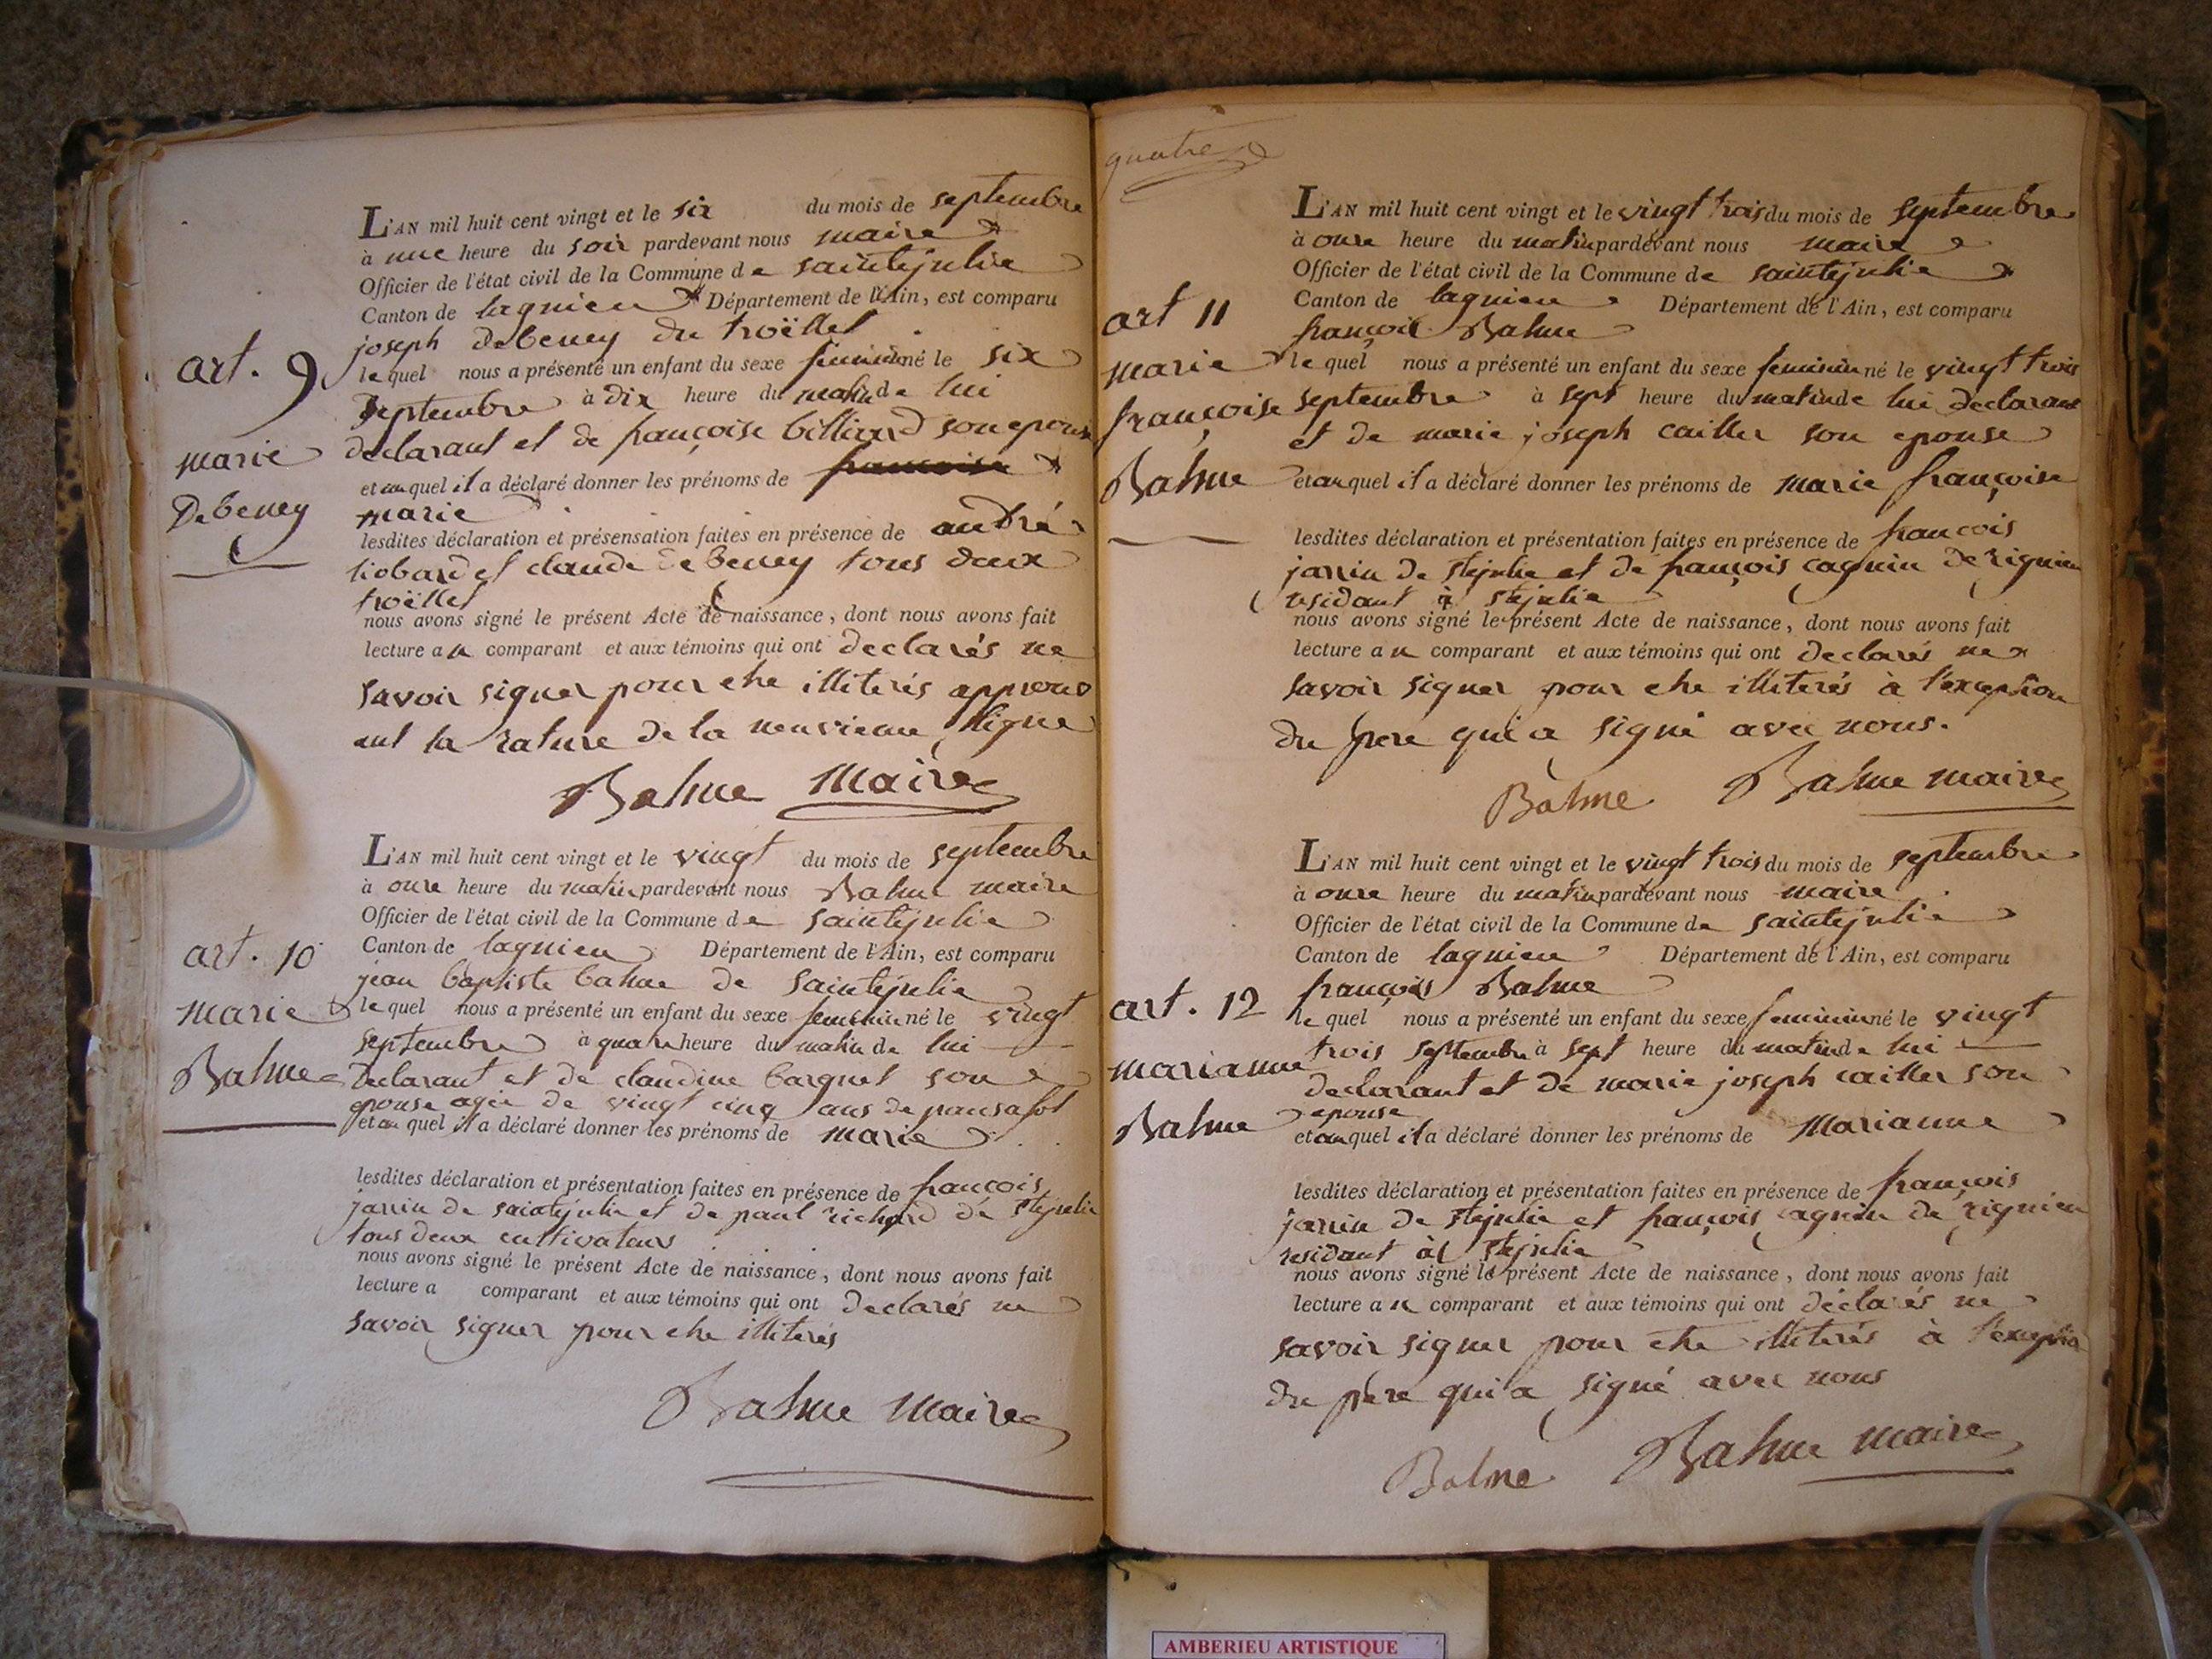 L'AN mil huit cent vingt et le six du mois de septembre
à une heure du soir pardevant nous maire
Officier de l'état civil de la Commune de saintejulie
Canton de lagnieu Département de l'Ain, est comparu
joseph Debeney du troëllet
art. 9
lequel nous a présenté un enfant du sexe feminin né le six
septembre à dix heure du matin de lui
declarant et de françoise billiard son epouse
marie
et auquel il a déclaré donner les prénoms de françoise
Debeney
marie
lesdites déclaration et présensation faites en présence de andré
liobard et claude debeney tous deux
troëllet
nous avons signé le présent Acte de naissance, dont nous avons fait
lecture au comparant et aux témoins qui ont declarés ne
savoir signer pour etre illiterés approuv
ant la rature de la neuvieme ligne
Balme maire
L'AN mil huit cent vingt et le vingt du mois de septembre
à onze heure du matin pardevant nous Balme maire
Officier de l'état civil de la Commune de saintejulie
art. 10
Canton de lagnieu Département de l'Ain, est comparu
jean baptiste balme de saintejulie
marie
lequel nous a présenté un enfant du sexe feminin né le vingt
septembre à quatre heure du matin de lui
Balme
declarant et de claudine barquet son
epouse agée de vingt cinq ans de
et au quel il a déclaré donner les prénoms de marie
lesdites déclaration et présentation faites en présence de françois
janin de saintejulie et de paul richard de stejulie
tous deux cultivateurs
nous avons signé le présent Acte de naissance, dont nous avons fait
lecture a comparant et aux témoins qui ont declarés ne
savoir signer pour etre illiterés
Balme maire
quatre
L'AN mil huit cent vingt et le vingt trois du mois de septembre
à onze heure du matin pardevant nous maire
Officier de l'état civil de la Commune de saintejulie
art 11
Canton de lagnieu Département de l'Ain, est comparu
françois Balme
marie
lequel nous a présenté un enfant du sexe feminin né le vingt trois
françoise
septembre à sept heure du matin de lui declarant
et de marie joseph cailler son epouse
Balme
et auquel il a déclaré donner les prénoms de marie françoise
lesdites déclaration et présentation faites en présence de françois
janin de stejulie et de françois cagnin de rignieu
residant à stejulie
nous avons signé le présent Acte de naissance, dont nous avons fait
lecture au comparant et aux témoins qui ont declarés ne
savoir signer pour etre illiterés à l'exception
du pere qui a signé avec nous.
Balme Balme maire
L'AN mil huit cent vingt et le vingt trois du mois de septembre
à onze heure du matin pardevant nous maire
Officier de l'état civil de la Commune de saintejulie
Canton de lagnieu Département de l'Ain, est comparu
françois Balme
art. 12
lequel nous a présenté un enfant du sexe feminin né le vingt
trois septembre à sept heure du matin de lui
marianne
declarant et de marie joseph cailler son
epouse
Balme
et auquel il a déclaré donner les prénoms de Marianne
lesdites déclaration et présentation faites en présence de françois
janin de stejulie et françois cagnin de rignieu
residant à stejulie
nous avons signé le présent Acte de naissance, dont nous avons fait
lecture au comparant et aux témoins qui ont déclarés ne
savoir signer pour etre illiterés à l'exception
du père qui a signé avec nous
Balme Balme maire
AMBERIEU ARTISTIQUE